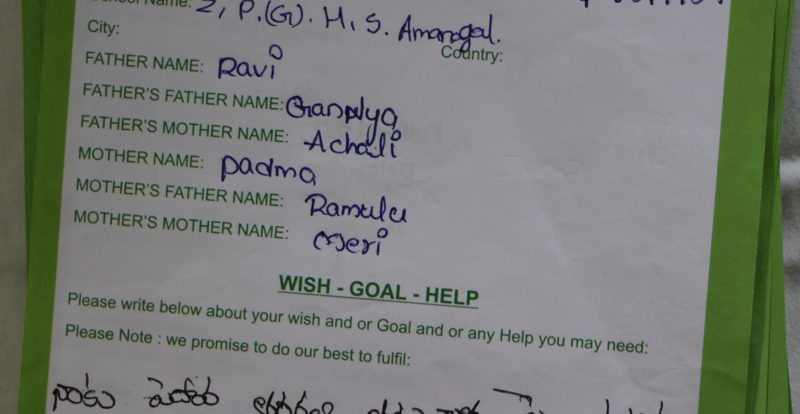 School Name: Z, P.(G). H. S. Amangal.
City: Country:
FATHER NAME: Ravi
FATHER'S FATHER NAME:
FATHER'S MOTHER NAME: Achali
MOTHER NAME: Padma
MOTHER'S FATHER NAME: Ramulu
MOTHER'S MOTHER NAME: Meri
WISH - GOAL - HELP
Please write below about your wish and or Goal and or any Help you may need:
Please Note : we promise to do our best to fulfil: